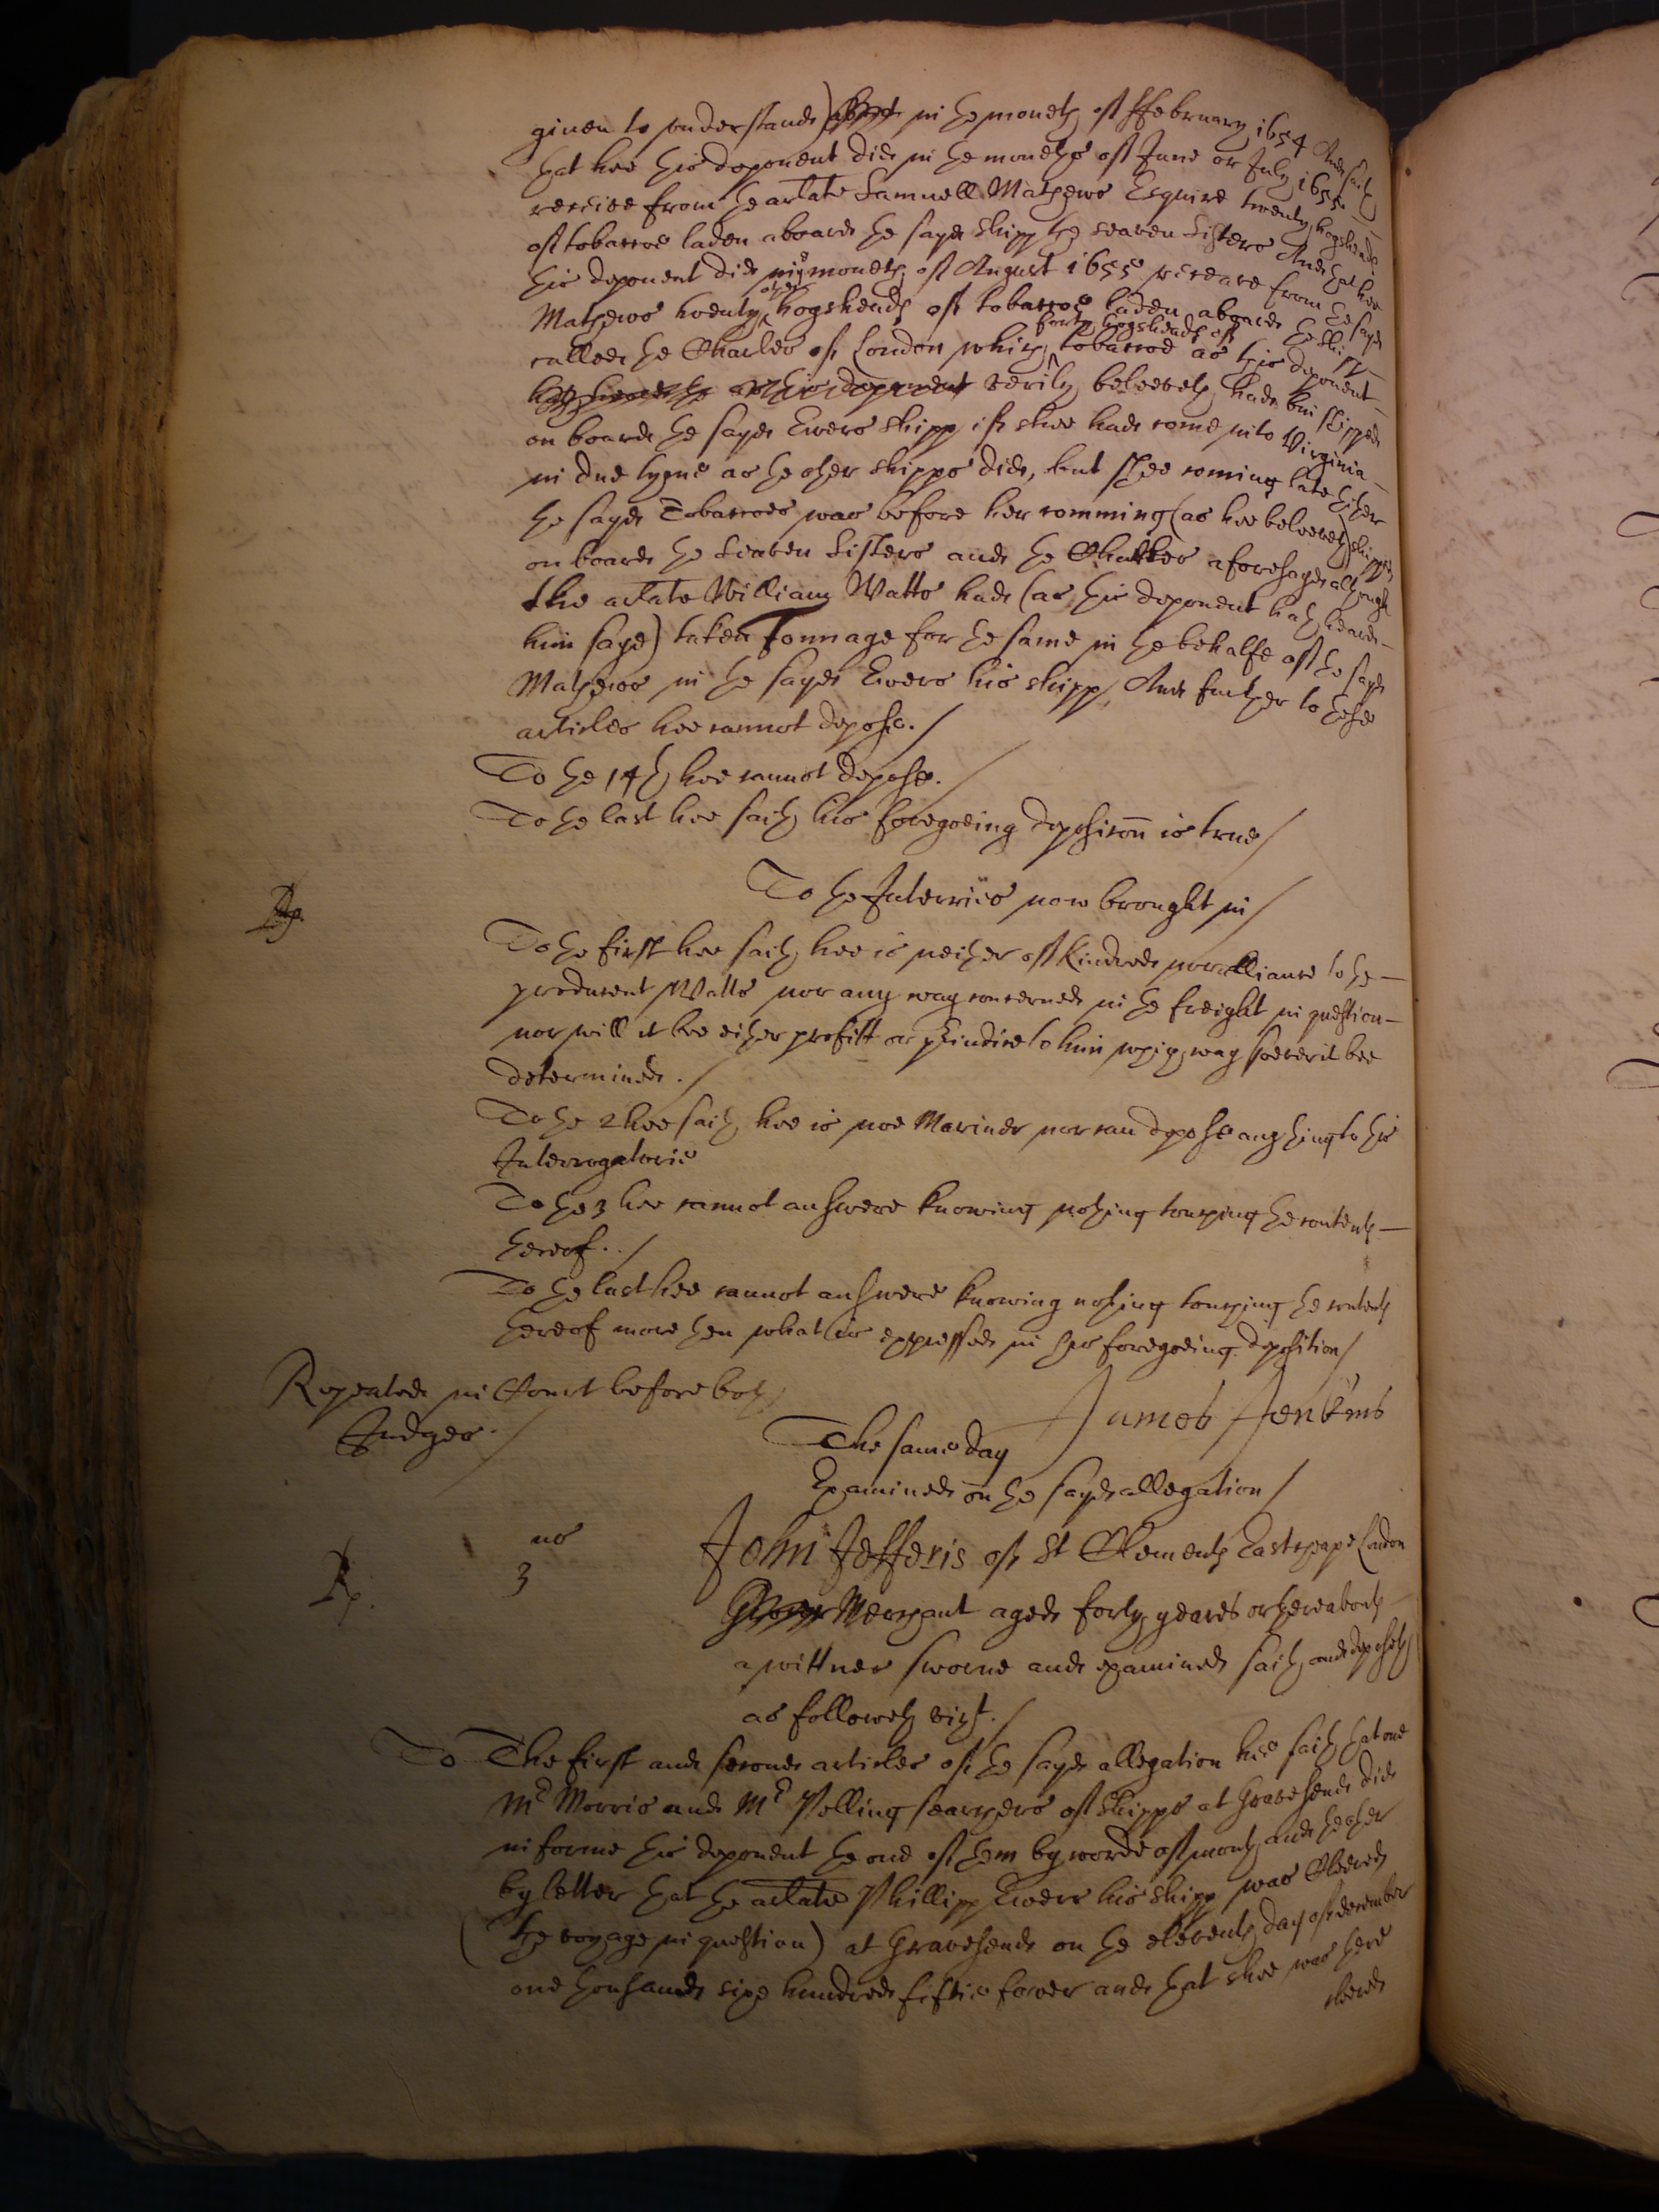 given to understand) about in the moneth of ffebruary 1654 And saith
that hee this deponent did in the moneths of June or July 1655
receive from the arlate Samuell Mathews Esquire twenty hogsheads
of tobaccoe laden aboard the sayd shipp the seaven Sisters And that hee
this deponent did in the moneth of August 1655 receave from the sayd
Mathews twenty other hogsheads of tobaccoe laden aboard the shipp
called the Charles of London which forty hogsheads of tobaccoe as this deponent
hath heard the this deponent verily beleeveth had bin shipped
on board the sayd Ewers shipp if shee had come into Virginia
in due tyme as the other shipps did, but shee coming late thither
the sayd Tobaccoes was before her comming (as hee beleeveth) shipped
on board the Seaven Sisters and the Charles aforesayd although
the arlate William Watts had (as this deponent hath heard
him saye) taken Tonnage for the same in the behalfe of the sayd
Mathews in the sayd Ewers his shipp, And further to these
articles hee cannot depose./
To the 14th hee cannot depose./
To the last hee saith his foregoeing deposicon is true/
To the Interries now brought in/
Rp.
To the first hee saith hee is neither of kindred nor alliance to the
producent Watts nor any way concerned in the freight in question
nor will it bee either profitt or prjudice to him which way soever it bee
determined./
To the 2 hee saith hee is noe Mariner nor can depose any thing to this
Interrogatorie
To the 3 hee cannot answere knowing nothing touching the contents
thereof../
To the last hee cannot answere knowing nothing touching the contents
thereof more then what is expressed in his foregoeing deposition/
Repeated in Court before both
Judges./
James Jenkens
The same day
Examined on the sayd allegation/
Rp.
us
3
John Jefferis of St Clements Eastcheape London
Merchant aged forty yeares or thereabouts
a wittnes sworne and examined saith and deposeth
as followeth vizt./
To The first and second articles of the sayd allegation hee saith that one
Mr Morris and Mr Pelling searchers of shipps at Gravesend did
informe this deponent the one of them by worde of mouth and the other
by letter that the arlate Phillipp Ewers his shipp was Cleered
(the voyage in question) at Gravesend on the eleventh day of december
one thousand sixe hundred fiftie fower and that shee was there
cleered